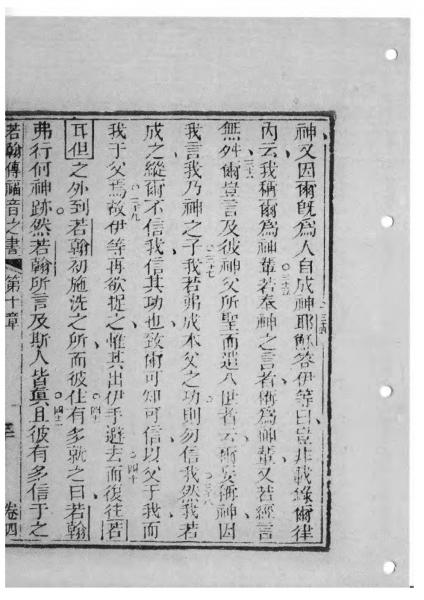 神又因爾旣爲人自成神耶穌答伊等曰豈非載錄爾律
內云我稱爾爲神輩若奉神之言者稱爲神輩又若經言
無舛爾豈言及彼神父所聖而遣入世者云爾妄稱神因
我言我乃神之子我若弗成本父之功則勿信我然我若
成之縱爾不信我信其功也致爾可知可信以父于我而
我于父焉故伊等再欲捉之惟其出伊手避去而復往若
耳但之外到若翰初施洗之所而彼住有多就之曰若翰
弗行何神跡然若翰所言及斯人皆眞且彼有多信于之
若翰傳福音之書 第十章 卷四
三四
三五
三六
三七
三八
三九
四十
四一
四二